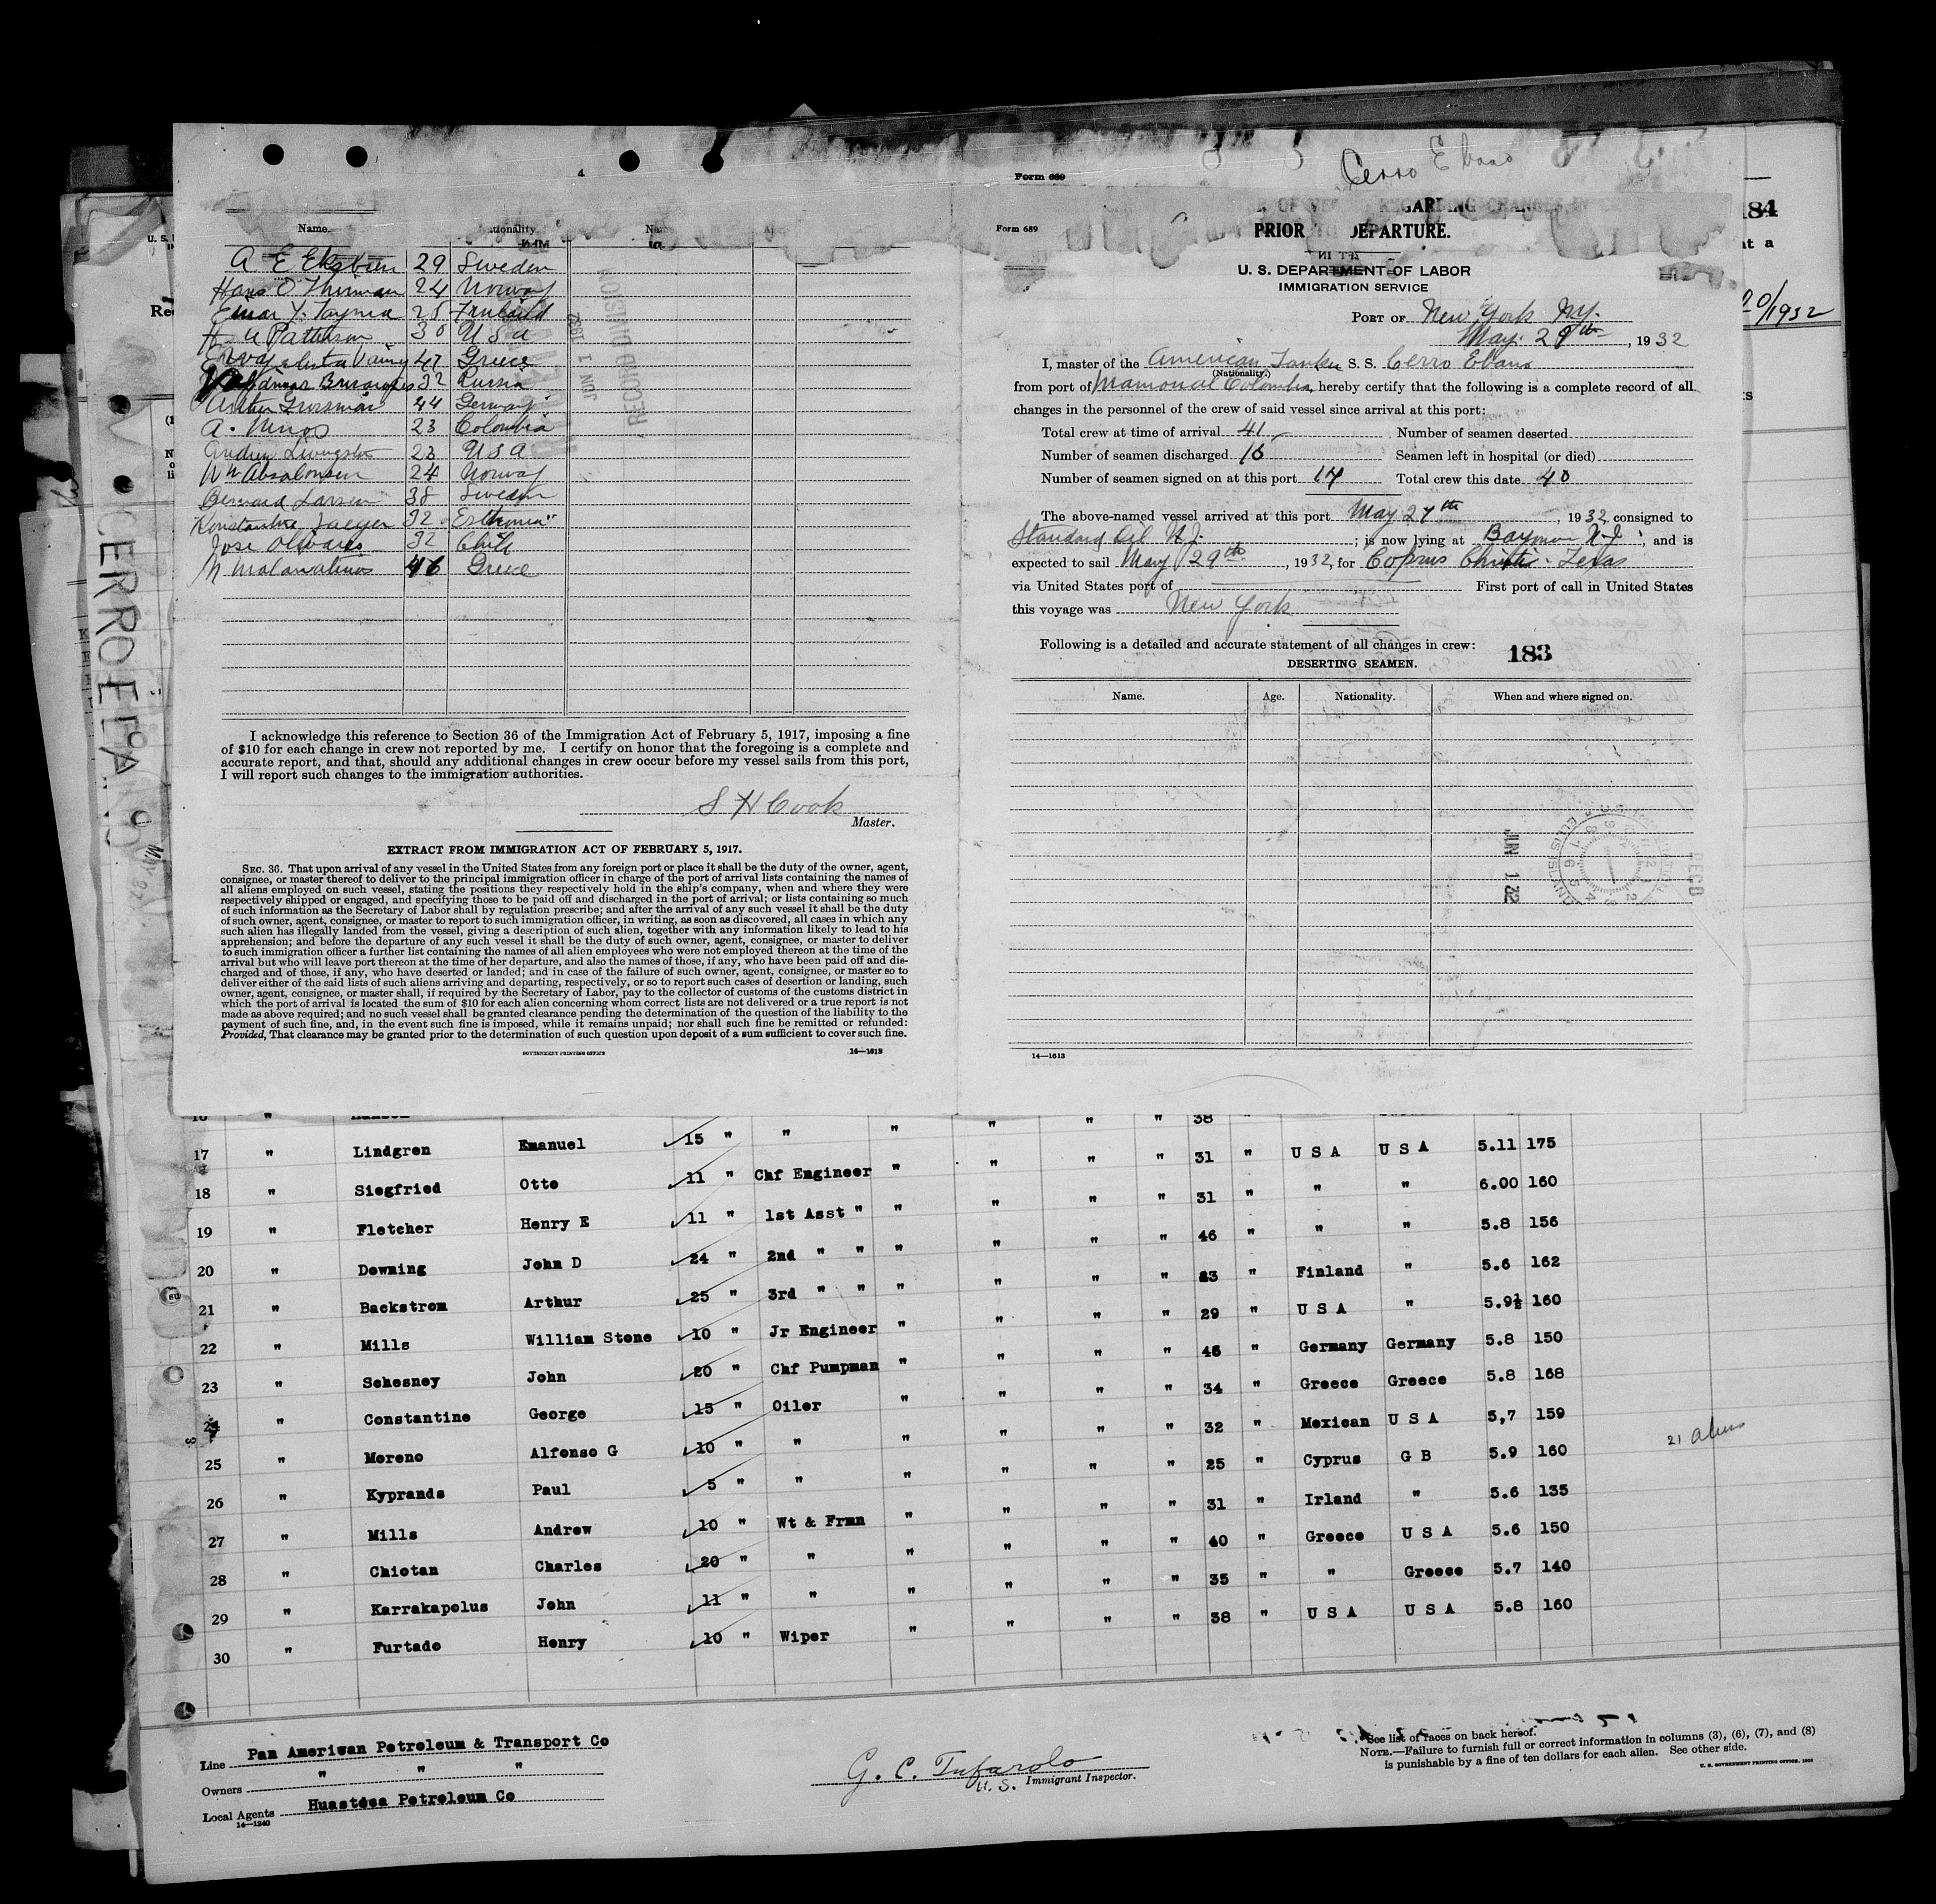 4
Name.
A E Ekstrien 29 Sweden
Hans O Thurman 24 Norway
Einar Y. 25
H A Patterson 30 U S A
47 Greece
32 Russia
Arthur Grossman 44 Germany
A. Ninos 23 Colombia
Andrew Livingston 23 U S A
Wm Absalonsen 24 Norway
Bernard Larsen 38 Sweden
Konstantine Jaeger 32 Esthonia
Jose Olivares 32 Chile
N 46 Greece
RECORD DIVISION
JUN 1 1932
I acknowledge this reference to Section 36 of the Immigration Act of February 5, 1917, imposing a fine
of $10 for each change in crew not reported by me. I certify on honor that the foregoing is a complete and
accurate report, and that, should any additional changes in crew occur before my vessel sails from this port,
I will report such changes to the immigration authorities.
S H Cook
Master.
EXTRACT FROM IMMIGRATION ACT OF FEBRUARY 5, 1917.
SEC. 36. That upon arrival of any vessel in the United States from any foreign port or place it shall be the duty of the owner, agent,
consignee, or master thereof to deliver to the principal immigration officer in charge of the port of arrival lists containing the names of
all aliens employed on such vessel, stating the positions they respectively hold in the ship's company, when and where they were
respectively shipped or engaged, and specifying those to be paid off and discharged in the port of arrival; or lists containing so much
of such information as the Secretary of Labor shall by regulation prescribe; and after the arrival of any such vessel it shall be the duty
of such owner, agent, consignee, or master to report to such immigration officer, in writing, as soon as discovered, all cases in which any
such alien has illegally landed from the vessel, giving a description of such alien, together with any information likely to lead to his
apprehension; and before the departure of any such vessel it shall be the duty of such owner, agent, consignee, or master to deliver
to such immigration officer a further list containing the names of all alien employees who were not employed thereon at the time of the
arrival but who will leave port thereon at the time of her departure, and also the names of those, if any, who have been paid off and dis-
charged and of those, if any, who have deserted or landed; and in case of the failure of such owner, agent, consignee, or master so to
deliver either of the said lists of such aliens arriving and departing, respectively, or so to report such cases of desertion or landing, such
owner, agent, consignee, or master shall, if required by the Secretary of Labor, pay to the collector of customs of the customs district in
which the port of arrival is located the sum of $10 for each alien concerning whom correct lists are not delivered or a true report is not
made as above required; and no such vessel shall be granted clearance pending the determination of the question of the liability to the
payment of such fine, and, in the event such fine is imposed, while it remains unpaid; nor shall such fine be remitted or refunded:
Provided, That clearance may be granted prior to the determination of such question upon deposit of a sum sufficient to cover such fine.
GOVERNMENT PRINTING OFFICE 14—1613
Form 689
Cerro Ebano
Form 689
REGARDING CHANGES
PRIOR DEPARTURE.
U. S. DEPARTMENT OF LABOR
IMMIGRATION SERVICE
PORT OF New York N.Y.
May. 29th, 1932
I, master of the American Tanker S. S. Cerro Ebano
(Nationality.)
from port of Mamonal Colombia, hereby certify that the following is a complete record of all
changes in the personnel of the crew of said vessel since arrival at this port:
Total crew at time of arrival 41 Number of seamen deserted
Number of seamen discharged Seamen left in hospital (or died)
Number of seamen signed on at this port Total crew this date 40
The above-named vessel arrived at this port May 27th, 1932, consigned to
Standard Oil N.J.; is now lying at Bayonne N-J; and is
expected to sail May 29th, 1932, for Coprus Christi - Texas
via United States port of First port of call in United States
this voyage was New York
Following is a detailed and accurate statement of all changes in crew:
183
DESERTING SEAMEN.
Name. Age. Nationality. When and where signed on.
JUN 1 32
REC'D
14—1613
184
at a
0/1932
CERRO EBANO
17 " Lindgren Emanuel 15 " " " " " " 31 " U S A U S A 5.11 175
18 " Siegfried Otto 11 " Chf Engineer " " " " 31 " " " 6.00 160
19 " Fletcher Henry E 11 " 1st Asst " " " " " 46 " " " 5.8 156
20 " Downing John D 24 " 2nd " " " " " " 23 " Finland " 5.6 162
21 " Backstrom Arthur 25 " 3rd " " " " " " 29 " U S A " 5.9½ 160
22 " Mills William Stone 10 " Jr Engineer " " " " 45 " Germany Germany 5.8 150
23 " Schesney John 20 " Chf Pumpman " " " " 34 " Greece Greece 5.8 168
24 " Constantine George 15 " Oiler " " " " 32 " Mexican U S A 5,7 159
25 " Moreno Alfonso G 10 " " " " " " 25 " Cyprus G B 5.9 160
26 " Kyprands Paul 5 " " " " " " 31 " Irland " 5.6 135
27 " Mills Andrew 10 " Wt & Frmn " " " " 40 " Greece U S A 5.6 150
28 " Chiotan Charles 20 " " " " " " 35 " " Greece 5.7 140
29 " Karrakapolus John 11 " " " " " " 38 " U S A U S A 5.8 160
30 " Furtado Henry 10 " Wiper " " "
21 aliens
Line Pan Ameriwan Petroleum & Transport Co
Owners " " "
Local Agents Huasteca Petroleum Co
14—1240
G. C. Tufarolo
U. S. Immigrant Inspector.
See list of races on back hereof.
NOTE.—Failure to furnish full or correct information in columns (3), (6), (7), and (8)
is punishable by a fine of ten dollars for each alien. See other side.
U. S. GOVERNMENT PRINTING OFFICE